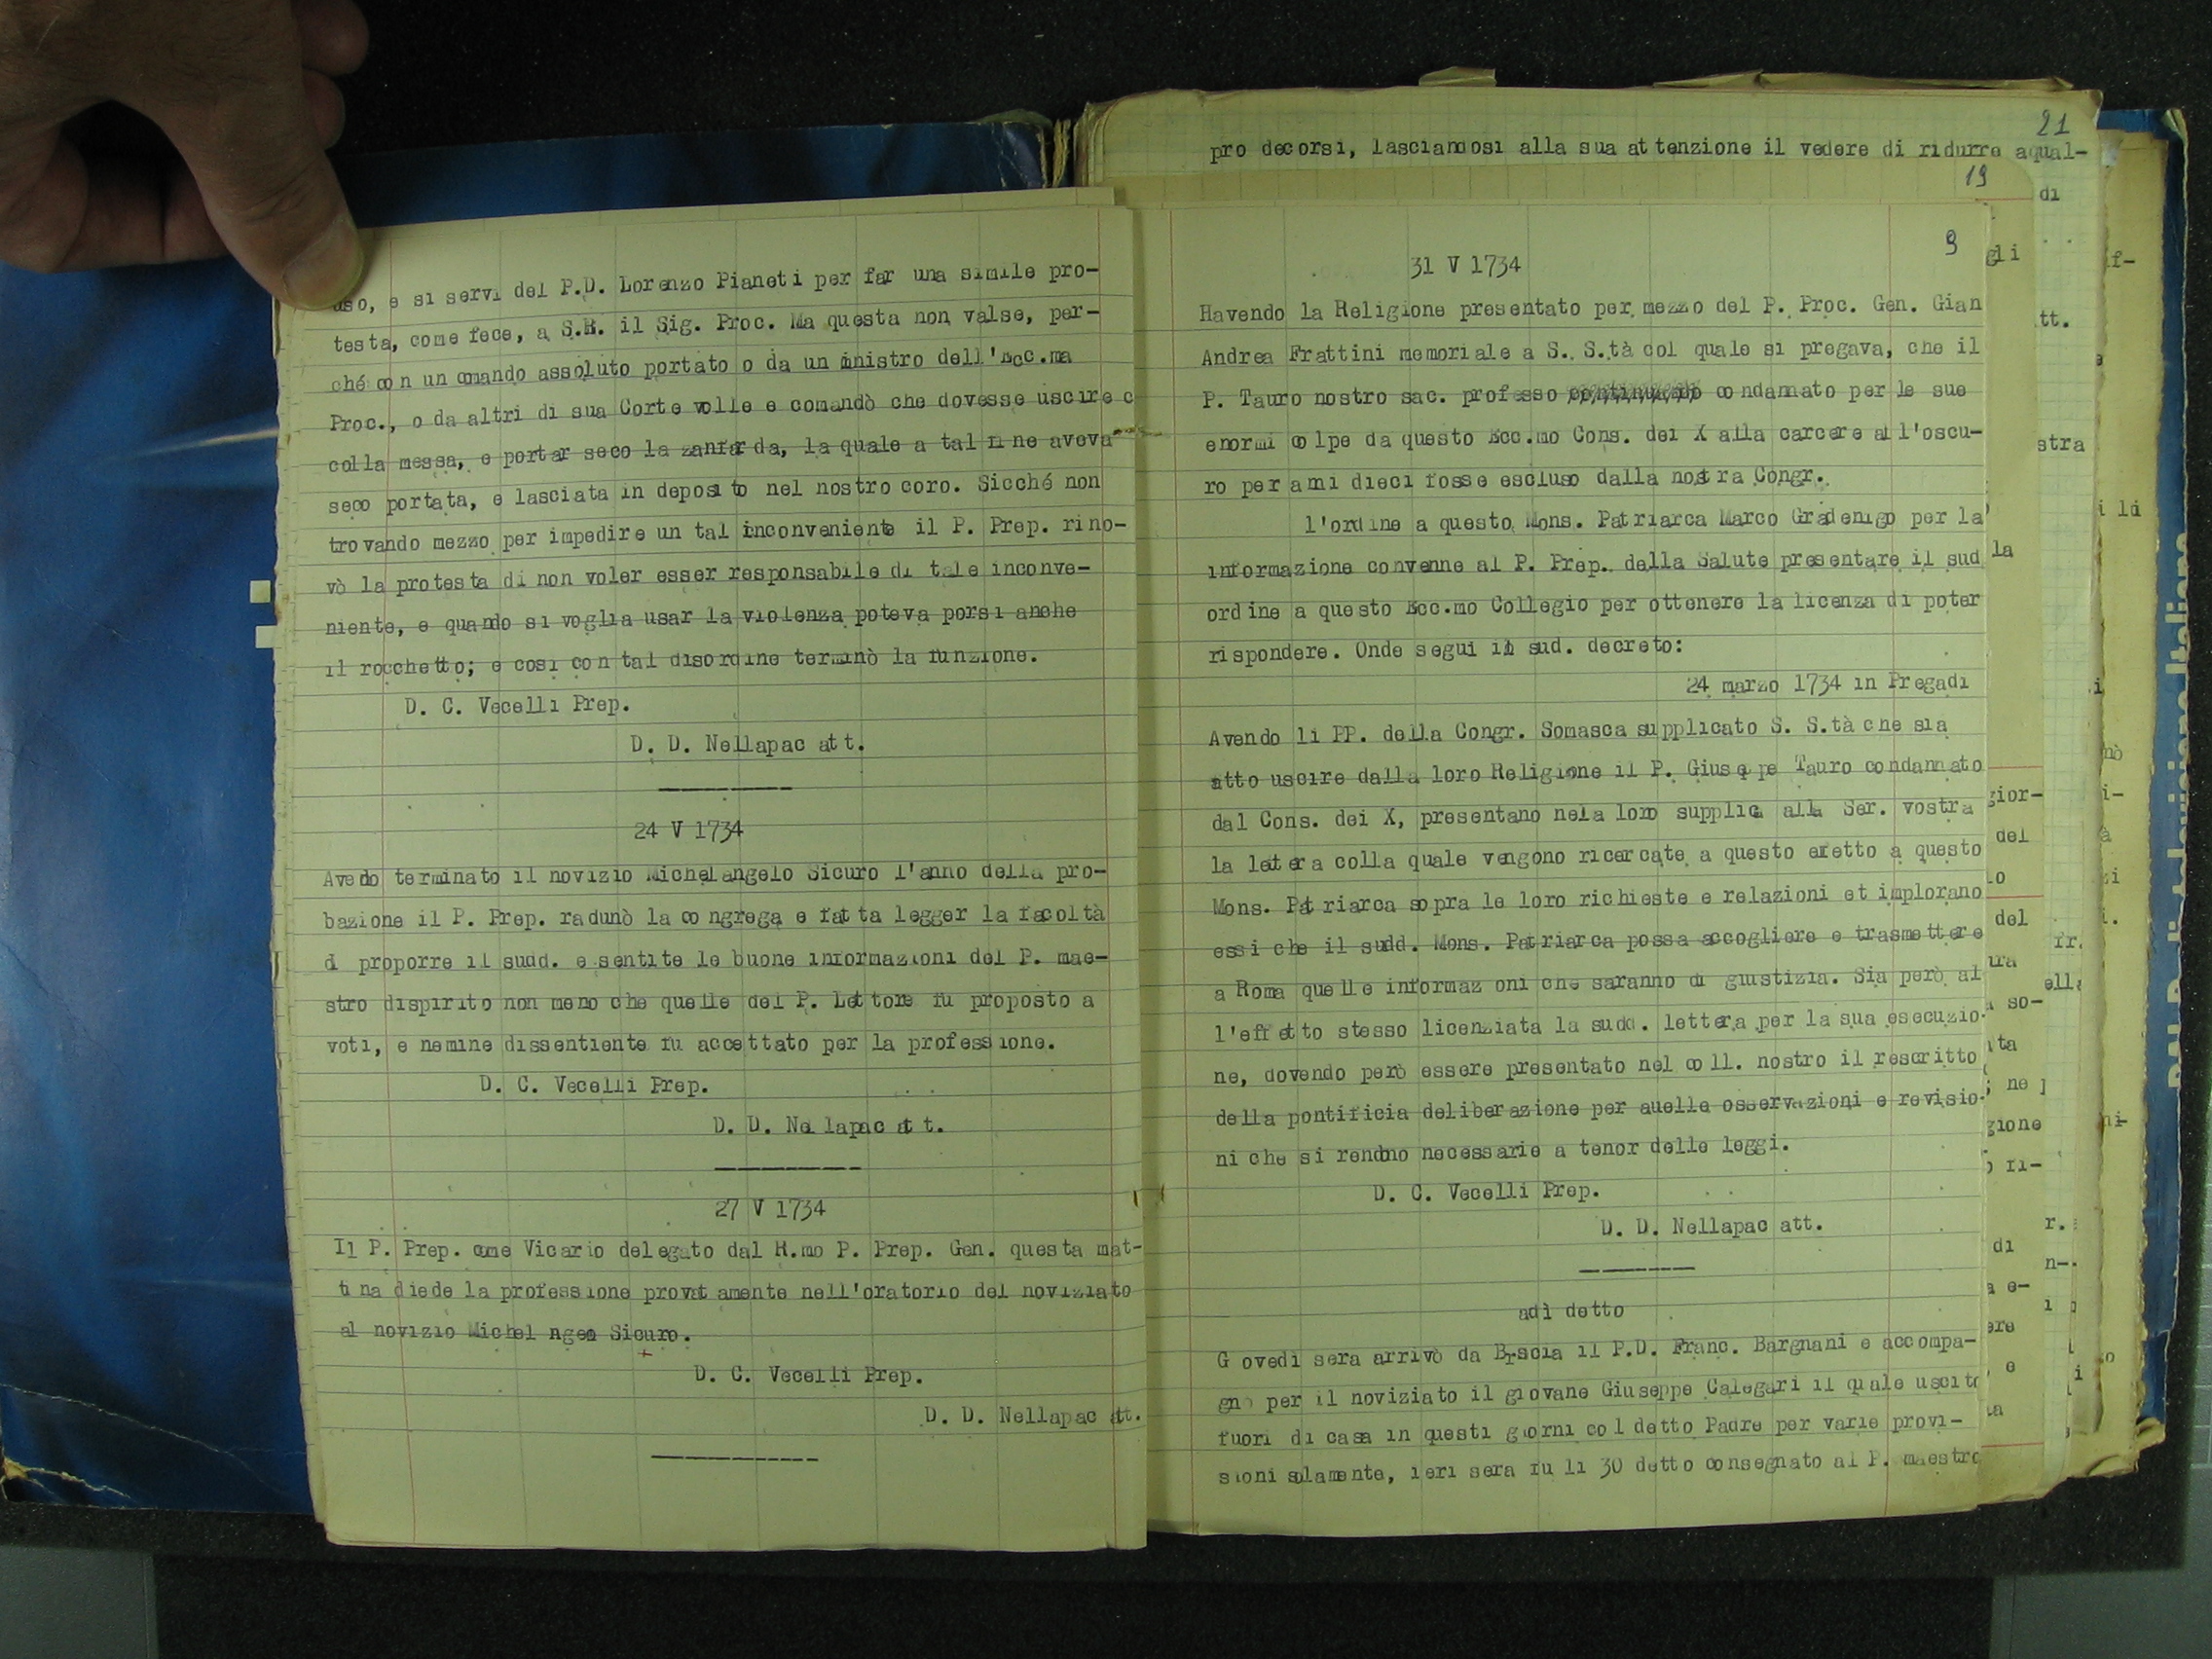 uso, e si servì del P.D. Lorenzo Pianeti per far una simile pro-
testa, come fece, a S.R. il Sig. Proc. Ma questa non valse, per-
ché con un omando assoluto portato o da un ministro dell'Ecc.ma
Proc., o da altri di sua Corte volle e comandò che dovesse uscire c
colla messa, e portar seco la zanfarda, la quale a tal fine aveva
seco portata, e lasciata in deposito nel nostro coro. Sicché non
trovando mezzo per impedire un tal inconveniente il P. Prep. rino-
vò la protesta di non voler esser responsabile di tale inconve-
niente, e quando si voglia usar la violenza poteva porsi anche
il rocchetto; e così con tal disordine terminò la funzione.
D. C. Vecelli Prep.
D. D. Nellapac att.
24 V 1734
Avedo terminato il novizio Michelangelo Sicuro l'anno della pro-
bazione il P. Prep. radunò la congrega e fatta legger la facoltà
di proporre il sudd. e sentite le buone informazioni del P. mae-
stro dispirito non meno che quelle del P. Lettore fu proposto a
voti, e nemine dissentiente fu accettato per la professione.
D. C. Vecelli Prep.
D. D. Nellapac att.
27 V 1734
Il P. Prep. ome Vicario delegato dal R.mo P. Prep. Gen. questa mat-
tina diede la professione provatamente nell'oratorio del noviziato
al novizio Michel ngeo Sicuro.
D. C. Vecelli Prep.
D. D. Nellapac att.
21
pro decorsi, lasciandosi alla sua attenzione il vedere di ridurre aqual-
19
9
31 V 1734
Havendo la Religione presentato per mezzo del P. Proc. Gen. Gian
Andrea Frattini memoriale a S. S.tà col quale si pregava, che il
P. Tauro nostro sac. professo condannato per le sue
enormi colpe da questo Ecc.mo Cons. dei X alla carcere all'oscu-
ro per anni dieci fosse escluso dalla nostra Congr.
l'ordine a questo Mons. Patriarca Marco Gradenigo per la
informazione convenne al P. Prep. della Salute presentare il sud
ordine a questo Ecc.mo Collegio per ottenere la licenza di poter
rispondere. Onde seguì il sud. decreto:
24 marzo 1734 in Pregadi
Avendo li PP. della Congr. Somasca supplicato S. S.tà che sia
atto uscire dalla loro Religione il P. Giuseppe Tauro condannato
dal Cons. dei X, presentano nela loro supplica alla Ser. vostra
la lettera colla quale vengono ricercate a questo efetto a questo
Mons. Patriarca sopra le loro richieste e relazioni et implorano
essi che il sudd. Mons. Patriarca possa accogliere e trasmettere
a Roma quelle informaz oni che saranno di giustizia. Sia però al
l'effetto stesso licenziata la sudd. lettera per la sua esecuzio-
ne, dovendo però essere presentato nel coll. nostro il rescritto
della pontificia deliberazione per quelle osservazioni e revisio-
ni che si rendono necessarie a tenor delle leggi.
D. C. Vecelli Prep.
D. D. Nellapac att.
adì detto
G ovedì sera arrivò da Brscia il P.D. Franc. Bargnani e accompa-
gnò per il noviziato il giovane Giuseppe Calegari il quale uscito
fuori di casa in questi giorni col detto Padre per varie provi-
sioni solamente, ieri sera fu li 30 detto consegnato al P. maestro